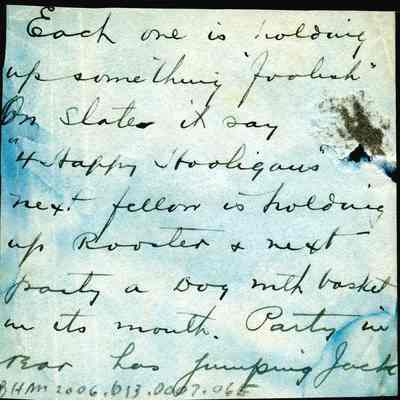 Each one is holding
up something "foolish"
On slate it say
"4 Happy Hooligans"
next fellow is holding
up Rooster & next
party a Dog with basket
in its mouth. Party in
rear has jumping Jack
BHM 2006.013.0007.065